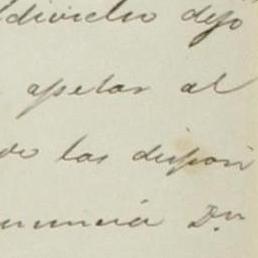 dividuo dejo
apelar al
do las dispon
enuncia Dn